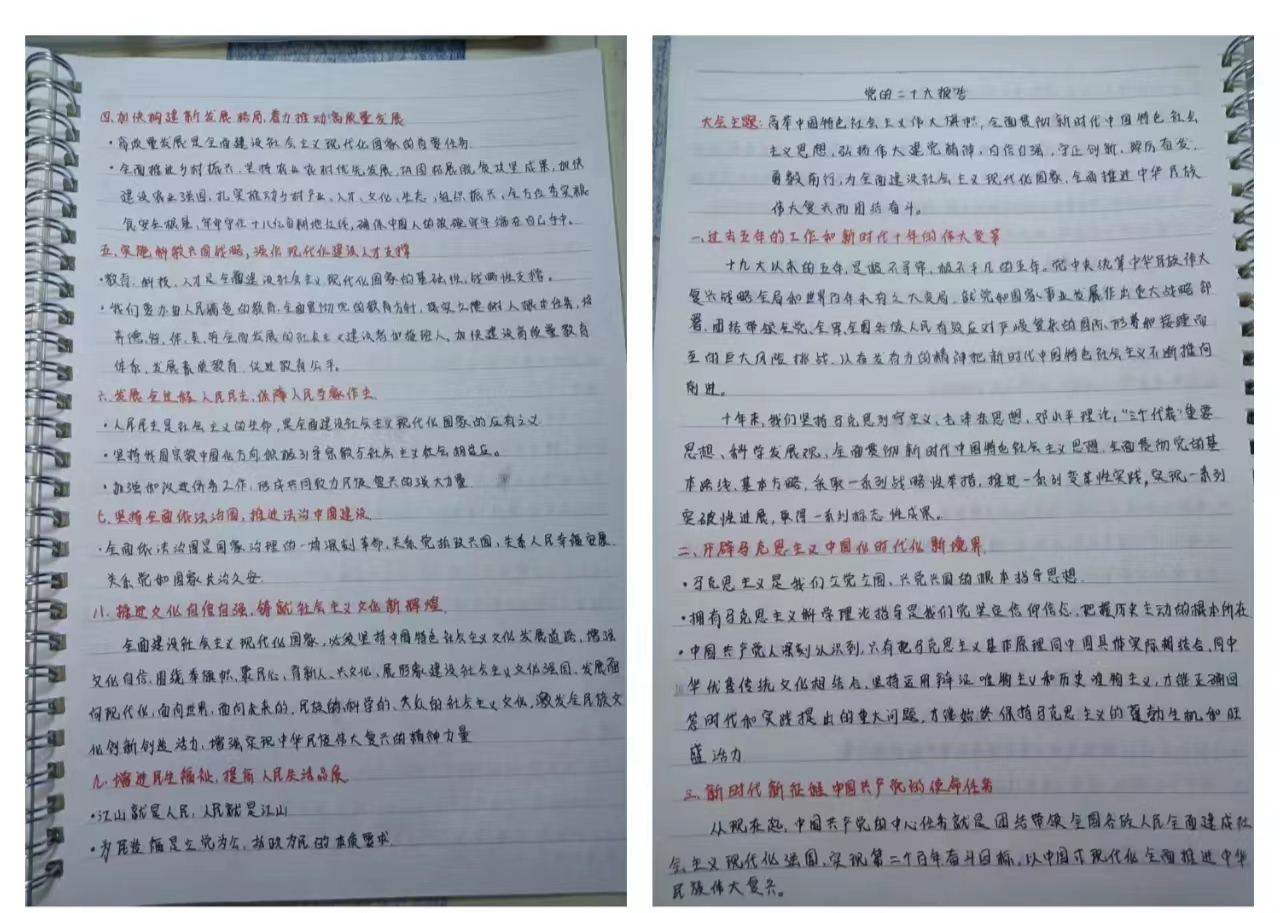 四.加快构建新发展格局,着力推动高质量发展
·高质量发展是全面建设社会主义现代化国家的首要任务.
·全面推进乡村振兴,坚持农业农村优先发展,巩固拓展脱贫攻坚成果,加快
建设农业强国,扎实推动乡村产业、人才、文化、生态、组织振兴,全方位夯实粮
食安全根基,牢牢守住十八亿亩耕地红线,确保中国人的饭碗牢牢端在自己手中.
五.实施科教兴国战略,强化现代化建设人才支撑
·教育、科技、人才是全面建设社会主义现代化国家的基础性、战略性支撑。
·我们要办好人民满意的教育,全面贯彻党的教育方针,落实立德树人根本任务,培
养德智、体、美、劳全面发展的社会主义建设者和接班人,加快建设高质量教育
体系,发展素质教育,促进教育公平。
六.发展全过程人民民主,保障人民当家作主
·人民民主是社会主义的生命,是全面建设社会主义现代化国家的应有之义.
·坚持我国宗教中国化方向,积极引导宗教与社会主义社会相适应。
·加强和改进侨务工作,形成共同致力民族复兴的强大力量
七.坚持全面依法治国,推进法治中国建设
·全面依法治国是国家治理的一场深刻革命,关系党执政兴国,关系人民幸福安康,
关系党和国家长治久安.
八.推进文化自信自强,铸就社会主义文化新辉煌.
全面建设社会主义现代化国家,必须坚持中国特色社会主义文化发展道路,增强
文化自信,围绕举旗帜、聚民心、育新人、兴文化、展形象建设社会主义文化强国,发展面
向现代化,面向世界,面向未来的,民族的科学的、大众的社会主义文化,激发全民族文
化创新创造活力,增强实现中华民族伟大复兴的精神力量
九.增进民生福祉,提高人民生活品质.
·江山就是人民,人民就是江山
·为民造福是立党为公、执政为民的本质要求.
党的二十大报告
大会主题:高举中国特色社会主义伟大旗帜,全面贯彻新时代中国特色社会
主义思想,弘扬伟大建党精神,自信自强,守正创新,踔厉奋发,
勇毅前行,为全面建设社会主义现代化国家,全面推进中华民族
伟大复兴而团结奋斗。
一.过去五年的工作和新时代十年的伟大变革
十九大以来的五年,是极不寻常,极不平凡的五年。党中央统筹中华民族伟大
复兴战略全局和世界百年未有之大变局,就党和国家事业发展作出重大战略部
署,团结带领全党,全军,全国各族人民有效应对严峻复杂的国际形势和接踵而
至的巨大风险挑战,以奋发有为的精神把新时代中国特色社会主义不断推向
前进。
十年来,我们坚持马克思列宁主义、毛泽东思想、邓小平理论,"三个代表"重要
思想、科学发展观,全面贯彻新时代中国特色社会主义思想,全面贯彻党的基
本路线、基本方略,采取一系列战略性举措,推进一系列变革性实践,实现一系列
突破性进展,取得一系列标志性成果。
二.开辟马克思主义中国化时代化新境界
·马克思主义是我们立党立国、兴党兴国的根本指导思想.
·拥有马克思主义科学理论指导是我们党坚定信仰信念,把握历史主动的根本所在
·中国共产党人深刻认识到,只有把马克思主义基本原理同中国具体实际相结合,同中
华优秀传统文化相结合,坚持运用辩证唯物主义和历史唯物主义,才能正确回
答时代和实践提出的重大问题,才能始终保持马克思主义的蓬勃生机和旺
盛活力
三.新时代新征程中国共产党的使命任务
从现在起,中国共产党的中心任务就是团结带领全国各族人民全面建成社
会主义现代化强国,实现第二个百年奋斗目标,以中国式现代化全面推进中华
民族伟大复兴。